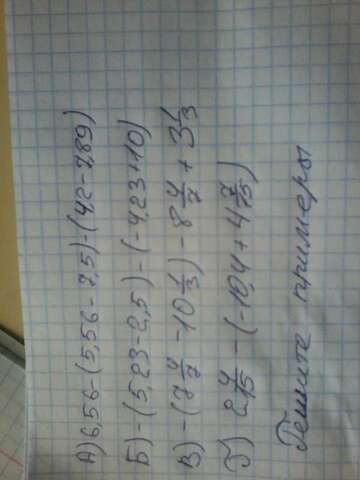 А) 6,56-(5,56-7,5)-(4,2-7,89)
Б) -(5,23-2,5)-(-4,23+10)
В) -(7 4/7 -10 1/3) - 8 4/7 + 3 1/3
Г) 2 4/15 - (-10,4 + 4 7/15)
Решите примеры